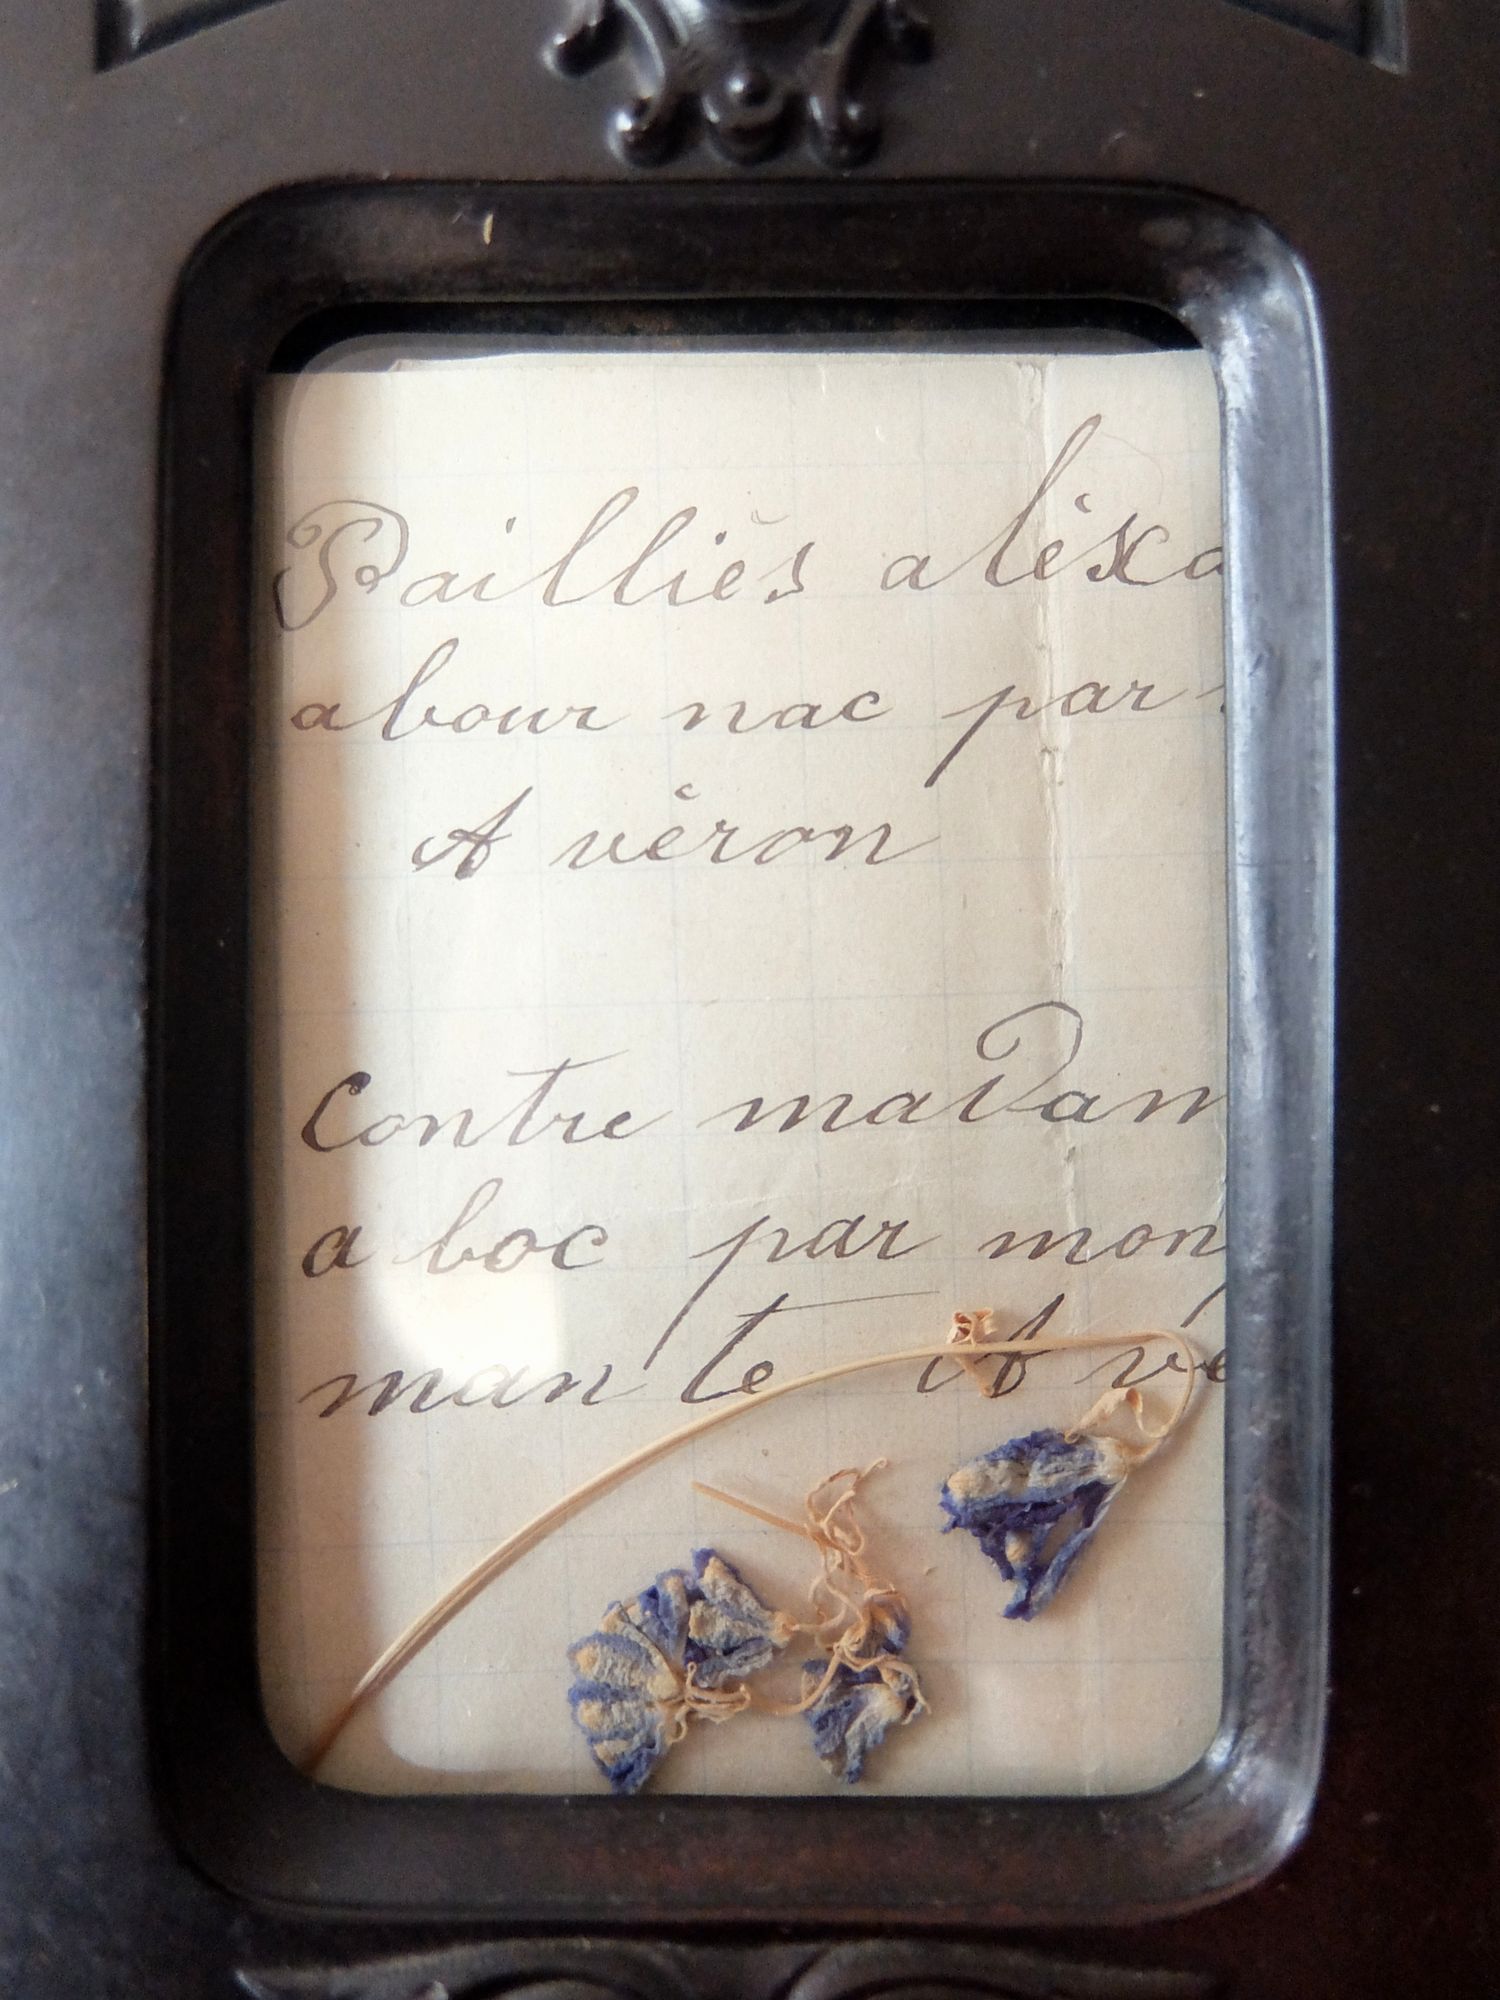 Pailliès alèxa
abour nac par
A vèron
Contre madam
a boc par mon
man te A vè